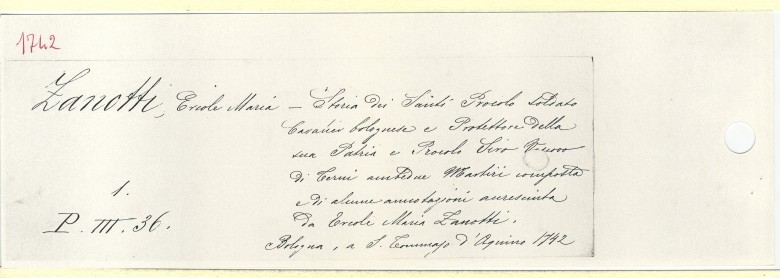 1742
Zanotti, Ercole Maria — Storia dei Santi Procolo soldato
Cavalier bolognese e Protettore della
sua Patria e Procolo Siro Vescovo
di Terni ambedue Martiri composta
e di alcune annotazioni accresciuta
da Ercole Maria Zanotti.
Bologna, a S. Tommaso d'Aquino 1742
1.
P. III. 36.